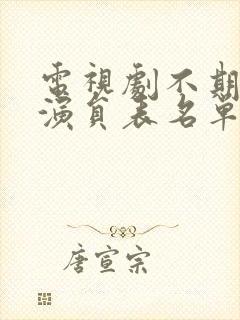 電視劇不期
演員表名單
唐宣宗